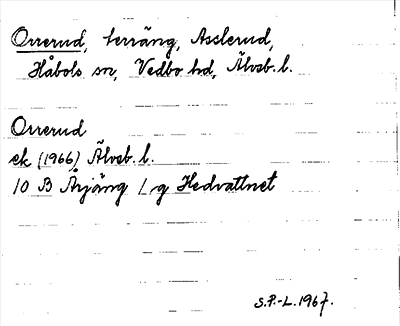 Orrerud, terräng, Asslerud,
Håbols sn, Vedbo hd, Älvsb. l.
Orrerud
ek (1966) Älvsb. l.
10 B Årjäng 1 g Hedvattnet
S.P.-L. 1967.